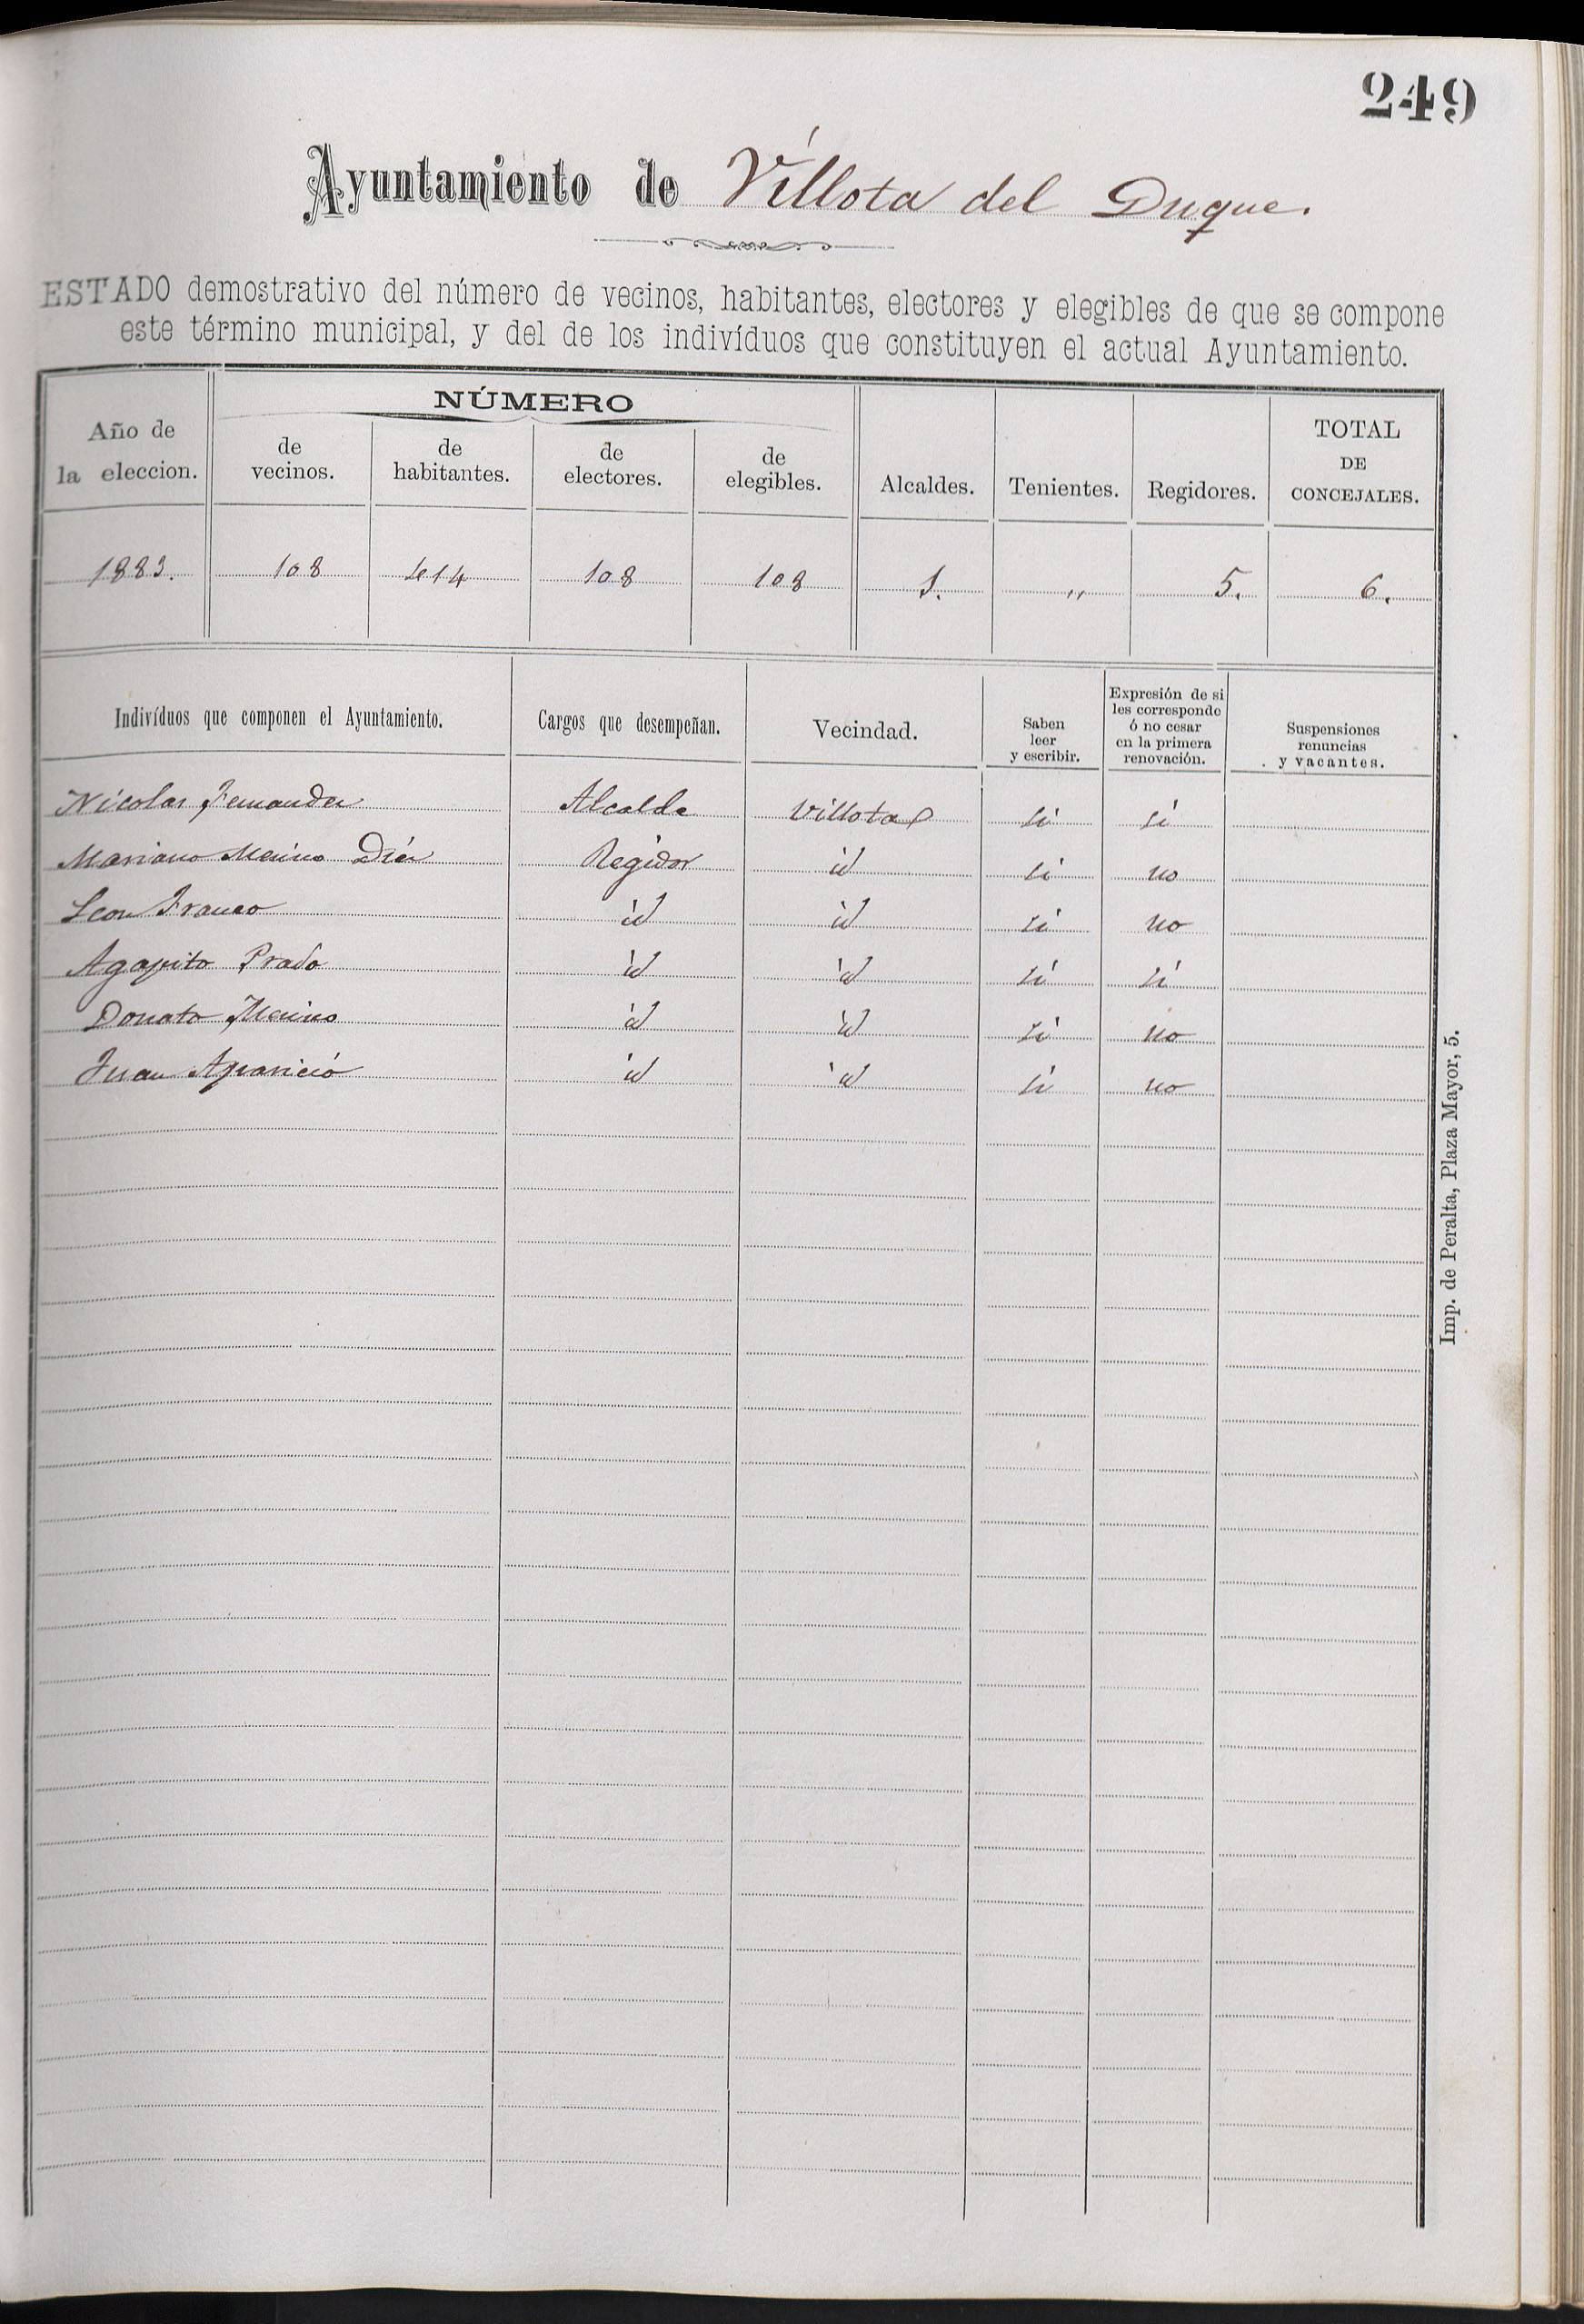 249
Ayuntamiento de Villota del Duque.
ESTADO demostrativo del número de vecinos, habitantes, electores y elegibles de que se compone
este término municipal, y del de los indivíduos que constituyen el actual Ayuntamiento.
Año de la eleccion. NÚMERO de vecinos. de habitantes. de electores. de elegibles. Alcaldes. Tenientes. Regidores. TOTAL DE CONCEJALES.
1883. 108 414 108 108 1. " 5. 6.
Indivíduos que componen el Ayuntamiento. Cargos que desempeñan. Vecindad. Saben leer y escribir. Expresión de si les corresponde ó no cesar en la primera renovación. Suspensiones renuncias y vacantes.
Nicolas Fernandez Alcalde Villota si si
Mariano Merino Diez Regidor id si no
Leon Franco id id si no
Agapito Prado id id si si
Donato Merino id id si no
Juan Aparicio id id si no
Imp. de Peralta, Plaza Mayor, 5.